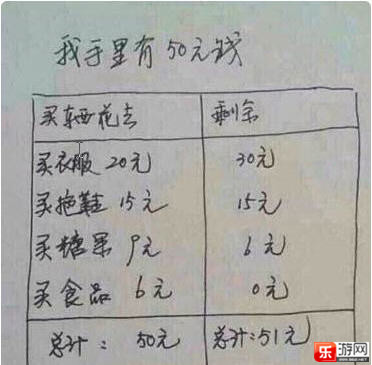 我手里有50元钱
买东西花去 剩余
买衣服 20元 30元
买拖鞋 15元 15元
买糖果 9元 6元
买食品 6元 0元
总计: 50元 总计:51元
乐游网